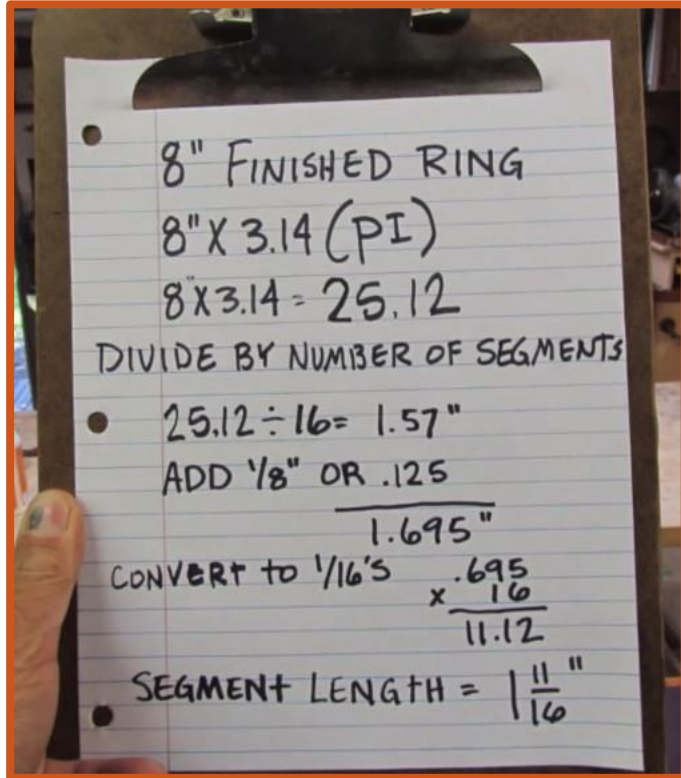 8" FINISHED RING
8" X 3.14 (PI)
8" X 3.14 = 25.12
DIVIDE BY NUMBER OF SEGMENTS
25.12 ÷ 16 = 1.57"
ADD 1/8" OR .125
1.695"
CONVERT TO 1/16'S .695
x 16
11.12
SEGMENT LENGTH = 1 11/16"